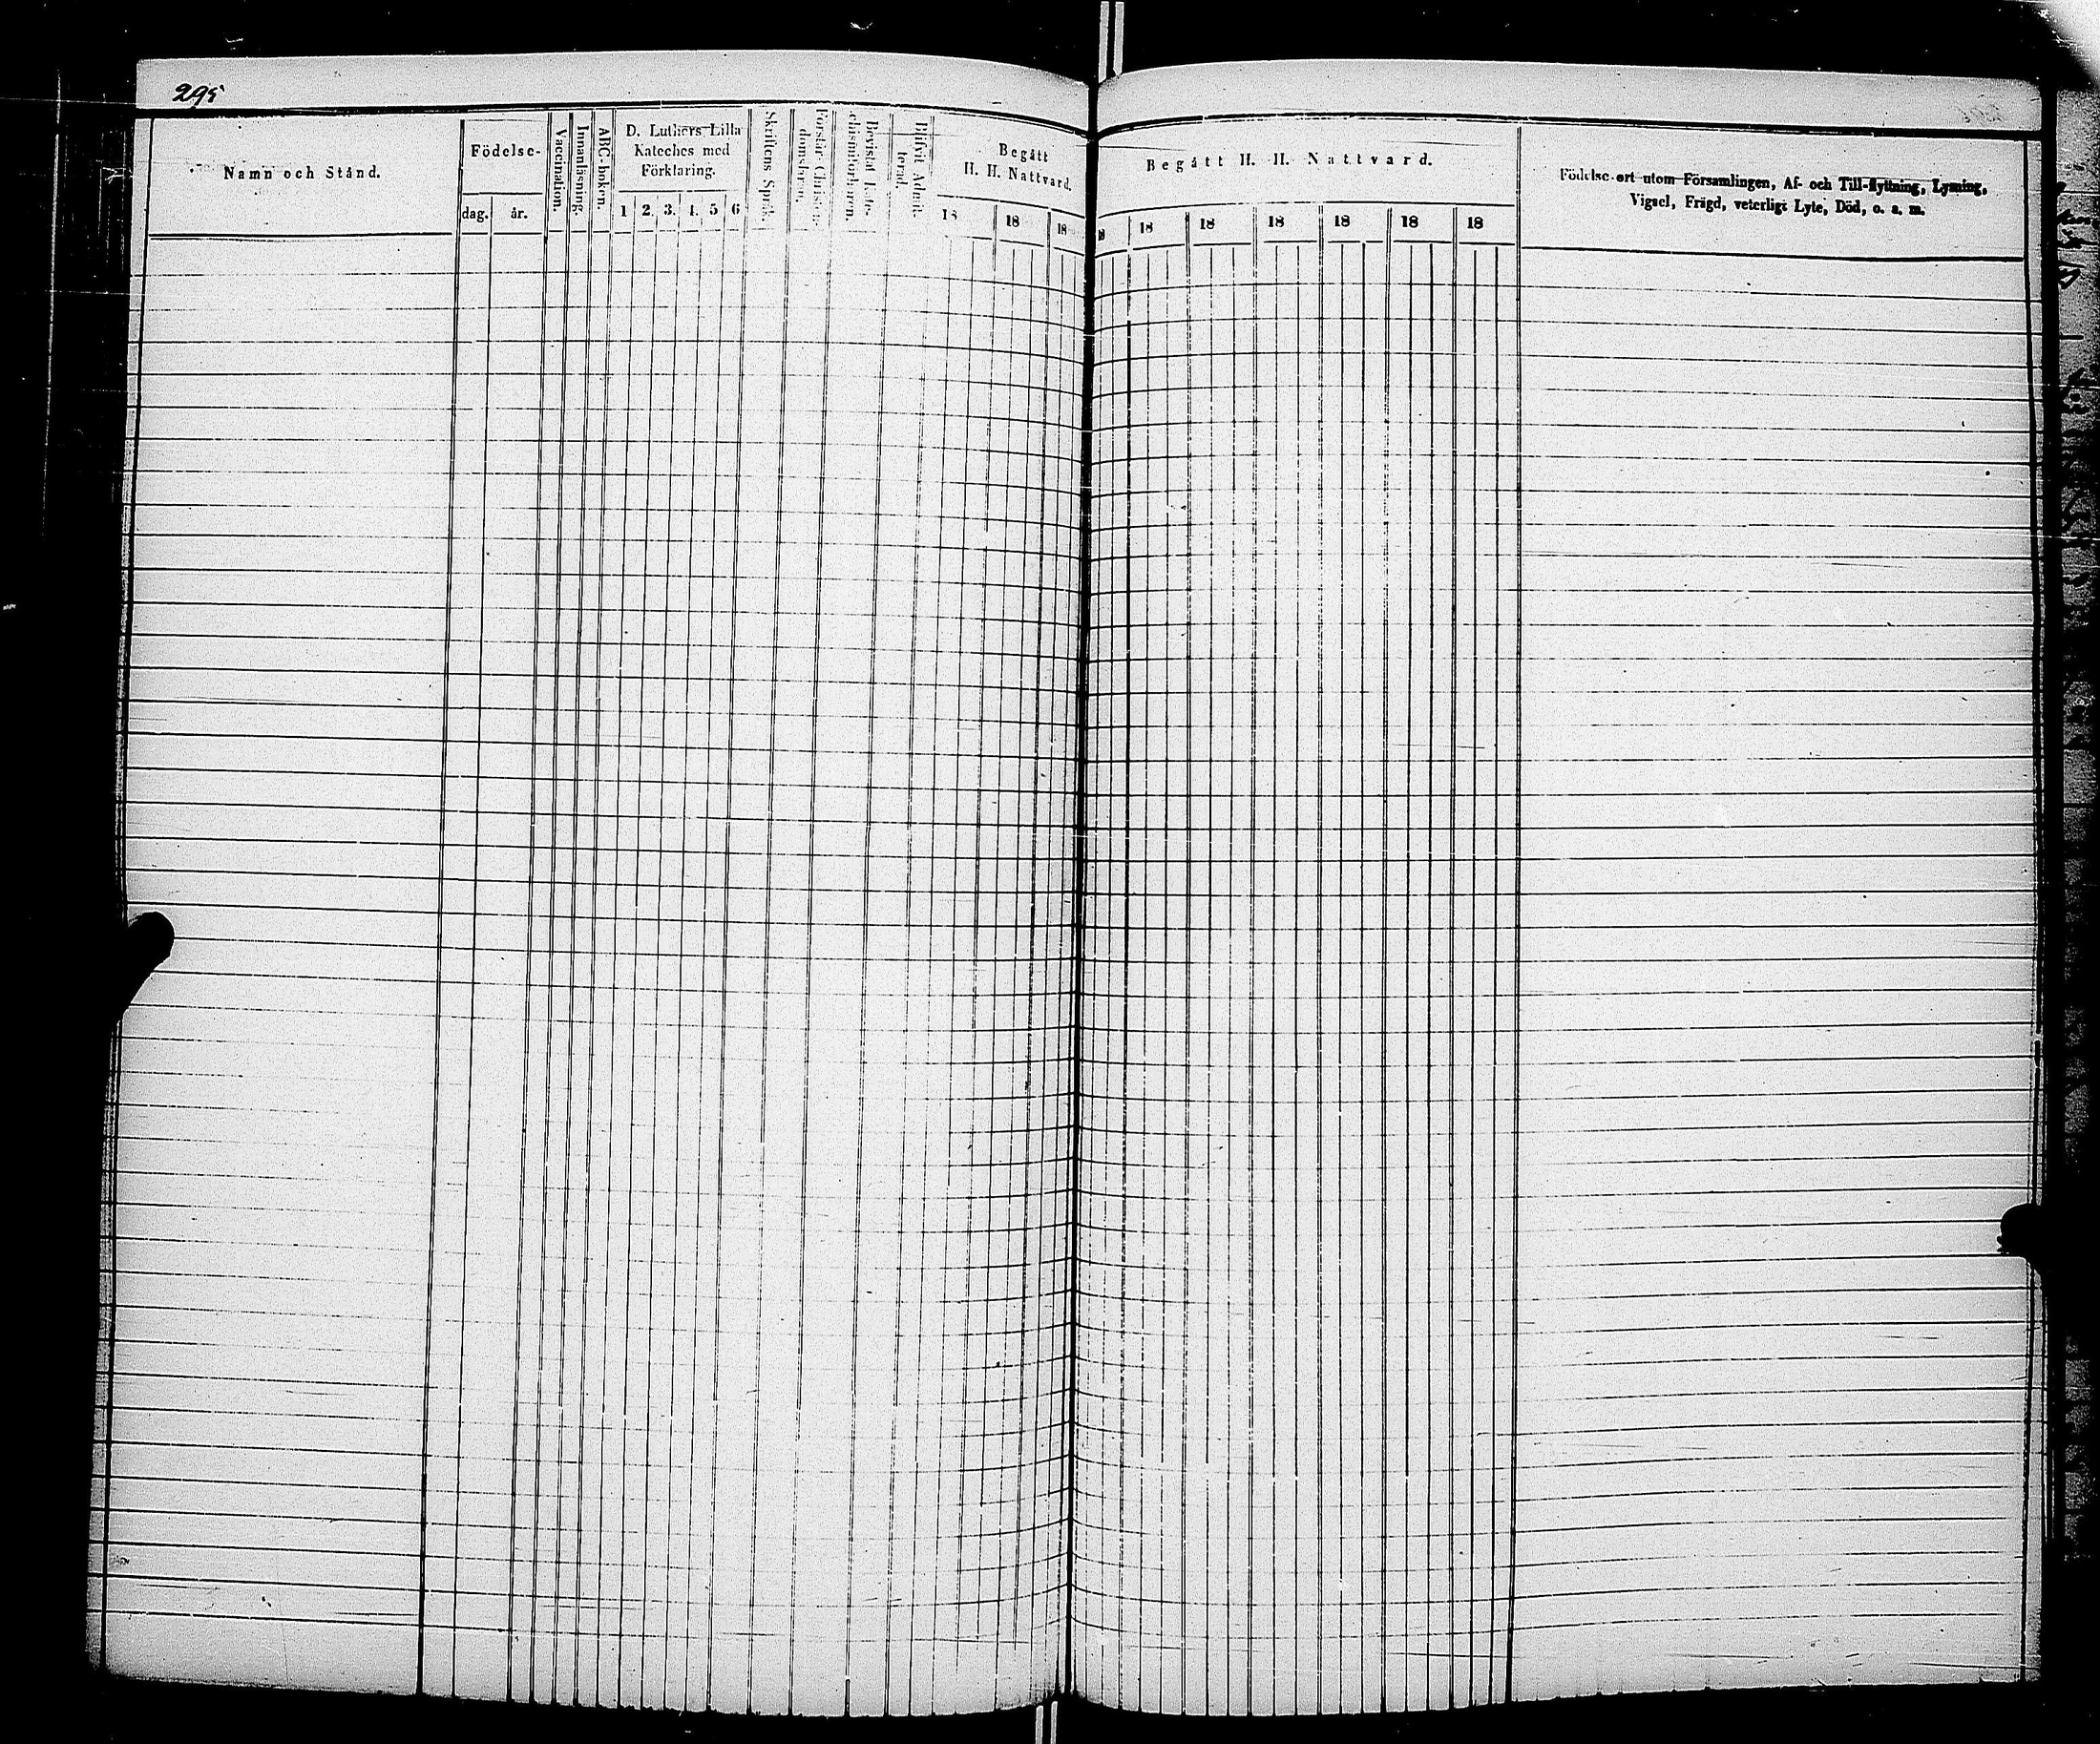 295
Namn och Stånd.
Födelse-
dag. år.
Vaccination.
Innanläsning.
ABC-boken.
D. Luthers Lilla
Kateches med
Förklaring.
1 2. 3. 4. 5 6
Skriftens Språk.
Förstår Christen-
domsläran.
Bevistat Kate-
chismiförhören.
Blifvit Admit-
terad.
Begått
H. H. Nattvard.
18 18 18
Begått H. H. Nattvard.
18 18 18 18 18 18
Födelse-ort utom Församlingen, Af- och Till-flyttning, Lysning,
Vigsel, Frägd, veterligt Lyte, Död, o. s. m.